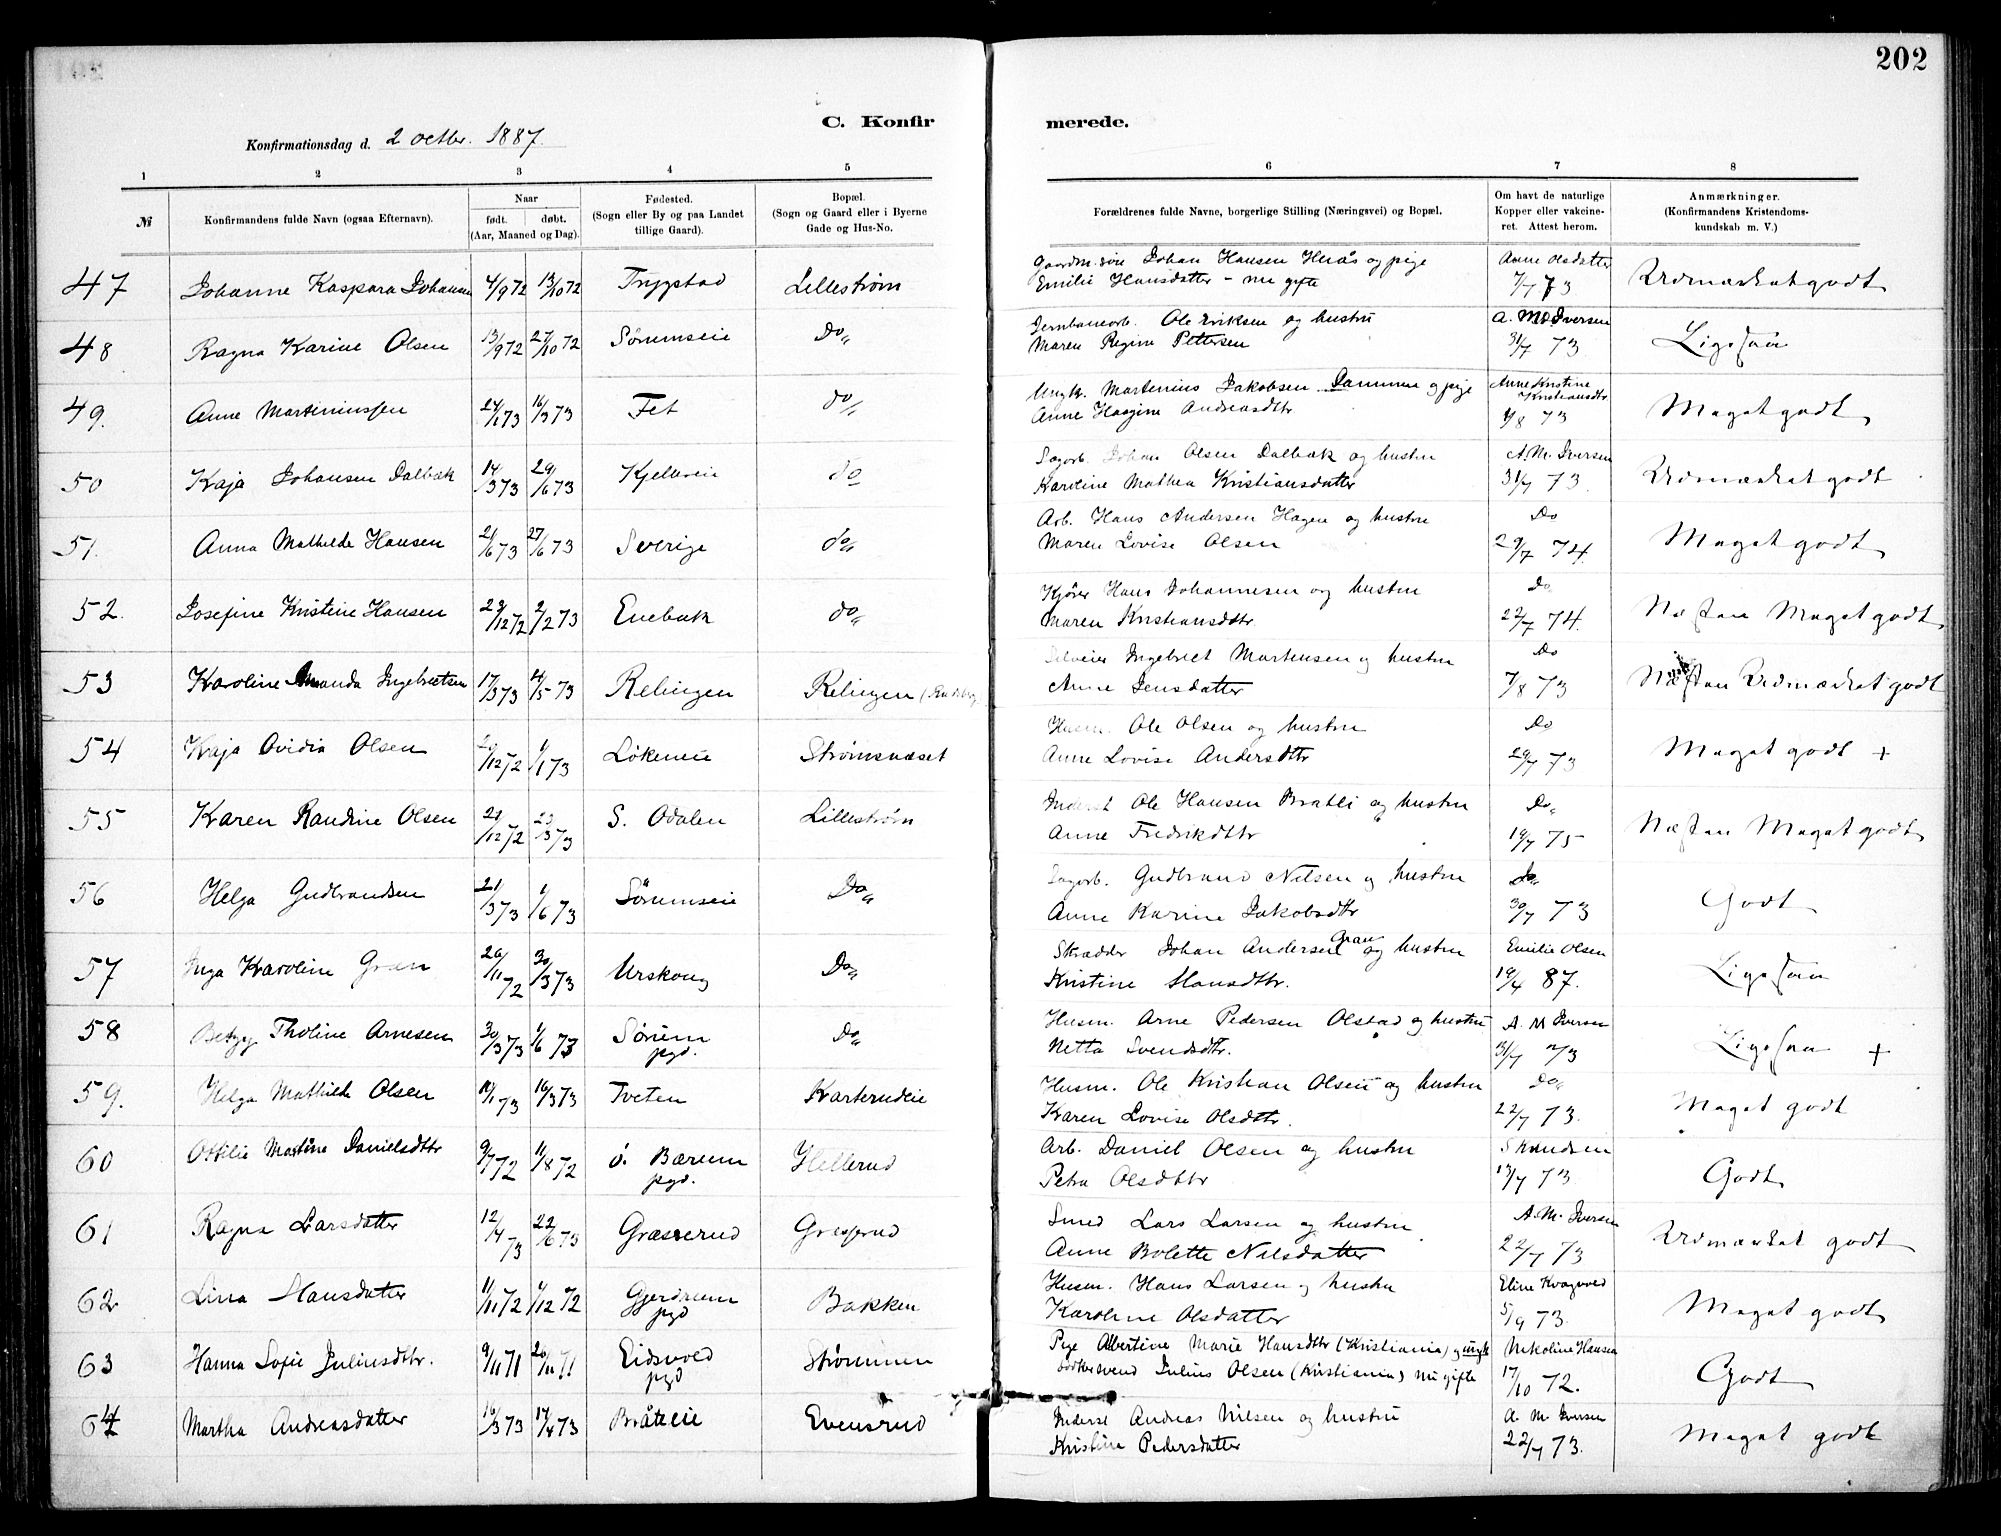 202
C. Konfirmerede.
Konfirmationsdag d. 2 octbr. 1887.
1 2 3 4 5 6 7 8
№ Konfirmandens fulde Navn (ogsaa Efternavn). Naar født. døbt. (Aar, Maaned og Dag). Fødested. (Sogn eller By og paa Landet tillige Gaard). Bopæl. (Sogn og Gaard eller i Byerne Gade og Hus-No. Forældrenes fulde Navne, borgerlige Stilling (Næringsvei) og Bopæl. Om havt de naturlige Kopper eller vakcineret. Attest herom. Anmærkninger. (Konfirmandens Kristendomskundskab m. V.)
47 Johanne Kaspara Johansen 4/9 72 13/10 72 Trygstad Lillestrøm Gaardm.søn Johan Hansen og pige Anne Olsdatter
Emilie Hansdatter - nu gifte 7/7 73 Udmærket godt
48 Ragna Karine Olsen 13/9 72 27/10 72 Sørumseie Do Jernbanearb. Ole Eriksen og hustru A. M. Iversen
Maren Regine Pettersen 31/7 73 Ligesaa
49. Anne Martiniussen 24/1 73 16/3 73 Fet do Ungk. Martinius Jakobsen Dammen og pige Anne Kristine Kristiansdtr
Anne Haagine Andreasdtr 8/8 73 Meget godt
50 Kaja Johansen Dalbæk 14/3 73 29/6 73 do Sagarb. Johan Olsen Dalbæk og hustru A. M. Iversen
Karoline Mathea Kristiansdatter 31/7 73 Udmærket godt
51. Anna Mathilde Hansen 21/6 73 27/6 73 Sverige do Arb. Hans Andersen Hagen og hustru Do
Maren Lovise Olsen 29/7 74. Meget godt
52. Josefine Kristine Hansen 23/12 72 2/2 73 Enebak do Kjører Hans Johannesen og hustru Do
Maren Kristiansdtr 22/7 74. Næsten Meget godt
53 Karoline Amanda Ingebretsen 17/3 73 4/5 73 Relingen Relingen Selveier Ingebret Martinsen og hustru Do
Anne Jensdatter 7/8 73 Næsten Udmærket godt
54 Kaja Ovidia Olsen /12 72 1/1 73 Løkeneie Strømsnæset Husm. Ole Olsen og hustru Do
Anne Lovise Andersdtr 29/7 73 Meget godt +
55 Karen Randine Olsen 21/12 72 23/3 73 S. Odalen Lillestrøm Inderst Ole Hansen Bratli og hustru Do
Anne Fredrikdtr 19/7 75 Næsten Meget godt
56 Helga Gudbrandsen 21/3 73 1/6 73 Sørumseie Do Sagarb. Gudbrand Nilsen og hustru Do
Anne Karine Jakobsdtr 30/7 73 Godt
57 Inga Karoline Gran 26/11 72 30/3 73 Urskoug Do Skrædder Johan Andersen Gran og hustru Emilie Olsen
Kristine Hansdtr. 19/4 87. Ligesaa
58 Betzy Tholine Arnesen 30/3 73 1/6 73 Sørum pgd. Do Husm. Arne Pedersen Olstad og hustru A. M Iversen
Netta Svendsdtr. 31/7 73 Ligesaa +
59. Helga Mathilde Olsen 10/1 73 16/3 73 Tveten Karterudeie Husm. Ole Kristian Olsen og hustru Do
Karen Lovise Olsdtr. 22/7 73. Meget godt
60 Ottilie Martine Danielsdtr 9/7 72 11/8 72 ö. Bærum pgd. Hellerud Arb. Daniel Olsen og hustru S Knudsen
Petra Olsdtr 13/7 73 Godt
61 Ragna Larsdatter 12/4 73 22/6 73 Græsserud Græsserud Smed Lars Larsen og hustru A. M. Iversen
Anne Bolette Nilsdatter 22/7 73 Udmærket godt
62 Lina Hansdatter 11/11 72 1/12 72 Gjerdrum pgd Bakken Husm. Hans Larsen og hustru Eline Kragvold
Karoline Olsdatter 5/9 73. Meget godt
63 Hanna Sofie Juliusdtr. 9/11 71 26/11 71 Eidsvold pgd Strømmen Pige Albertine Marie Hansdtr (Kristiania) og ungk Nikoline Hansen
Julius Olsen (Kristiania) nu gifte 17/10 72. Godt
64 Martha Andreasdatter 16/3 73 17/4 73 Bråteeie Evensrud Inderst Andreas Nilsen og hustru A. M. Iversen
Kristine Pedersdatter 22/7 73. Meget godt